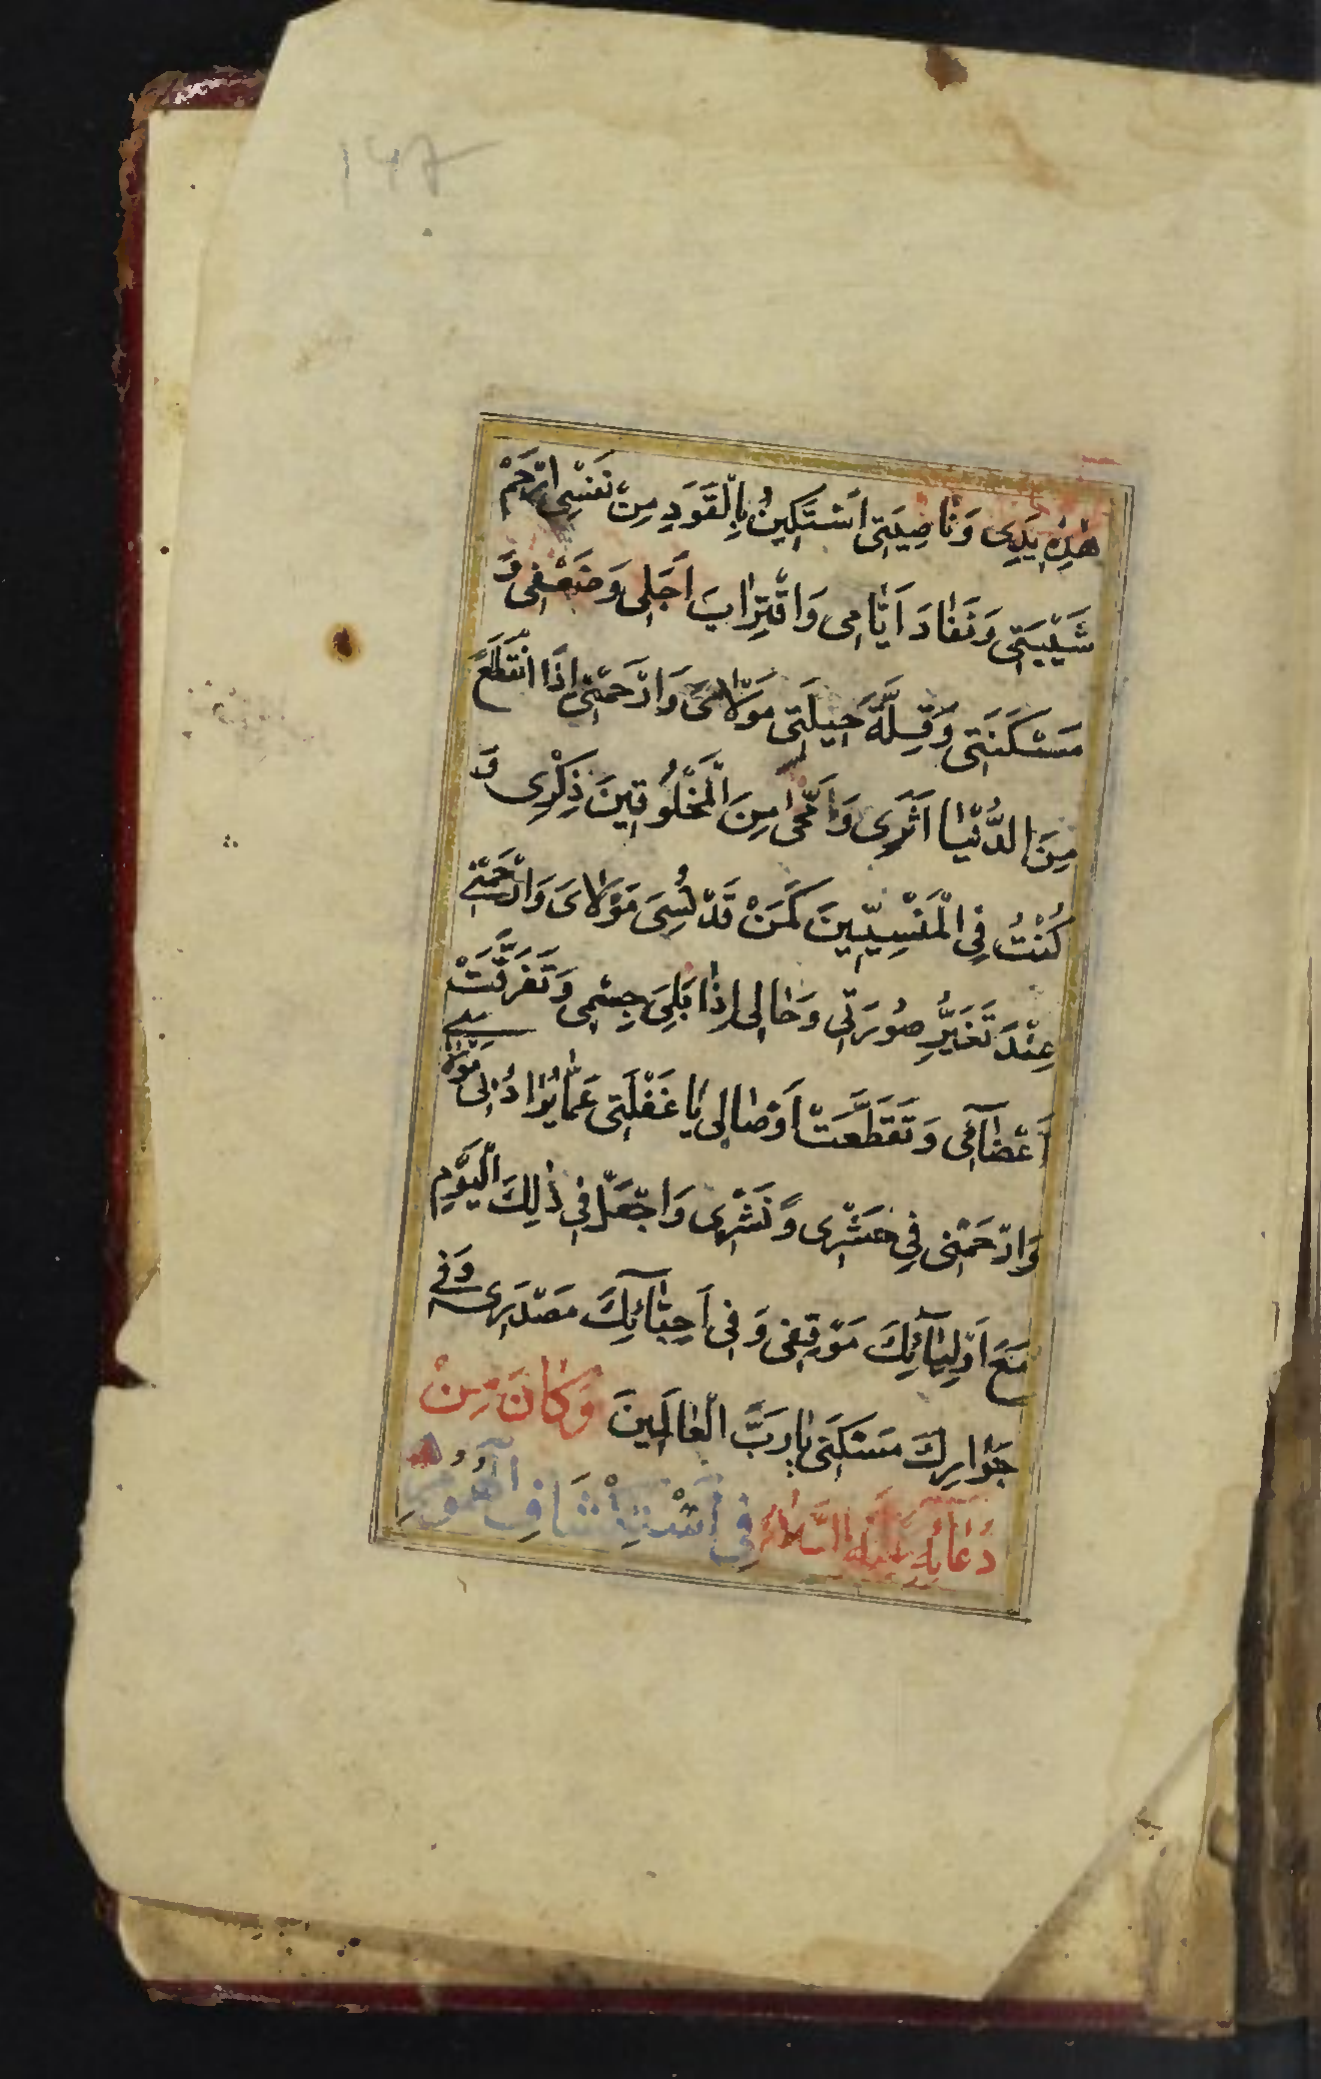 ۱۴۸
هٰذِهِ يَدِى وَنَاصِيَتِى اَسْتَكِينُ بِالْقَوَدِ مِنْ نَفْسِى اِرْحَمْ
شَيْبَتِى وَنَفَادَ اَيَّامِى وَاقْتِرَابَ اَجَلِى وَضَعْفِى وَ
مَسْكَنَتِى وَقِلَّةَ حِيلَتِى مَوْلَاىَ وَارْحَمْنِى اِذَا انْقَطَعَ
مِنَ الدُّنْيَا اَثَرِى وَامَّحٰى مِنَ الْمَخْلُوقِينَ ذِكْرِى وَ
كُنْتُ فِى الْمَنْسِيِّينَ كَمَنْ قَدْ نُسِىَ مَوْلَاىَ وَارْحَمْنِى
عِنْدَ تَغَيُّرِ صُورَتِى وَحَالِى اِذَا بَلِىَ جِسْمِى وَتَفَرَّقَتْ
اَعْضَآئِى وَتَقَطَّعَتْ اَوْصَالِى يَا غَفْلَتِى عَمَّا يُرَادُ بِى مَوْلَاىَ
وَارْحَمْنِى فِى حَشْرِى وَنَشْرِى وَاجْعَلْ فِى ذٰلِكَ الْيَوْمِ
مَعَ اَوْلِيَآئِكَ مَوْقِفِى وَفِى اَحِبَّآئِكَ مَصْدَرِى وَفِى
جِوَارِكَ مَسْكَنِى يَا رَبَّ الْعَالَمِينَ وَكَانَ مِنْ
دُعَآئِهِ عَلَيْهِ السَّلَامُ فِى اسْتِكْشَافِ الْهُمُومِ